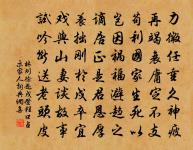 力微任重久神疲
再竭衰庸定不支
苟利國家生死以
豈因禍福避趨之
謫居正是君恩厚
養拙剛於戍卒宜
戲與山妻談故事
試吟斷送老頭皮
林則徐赴戍登程口占
示家人